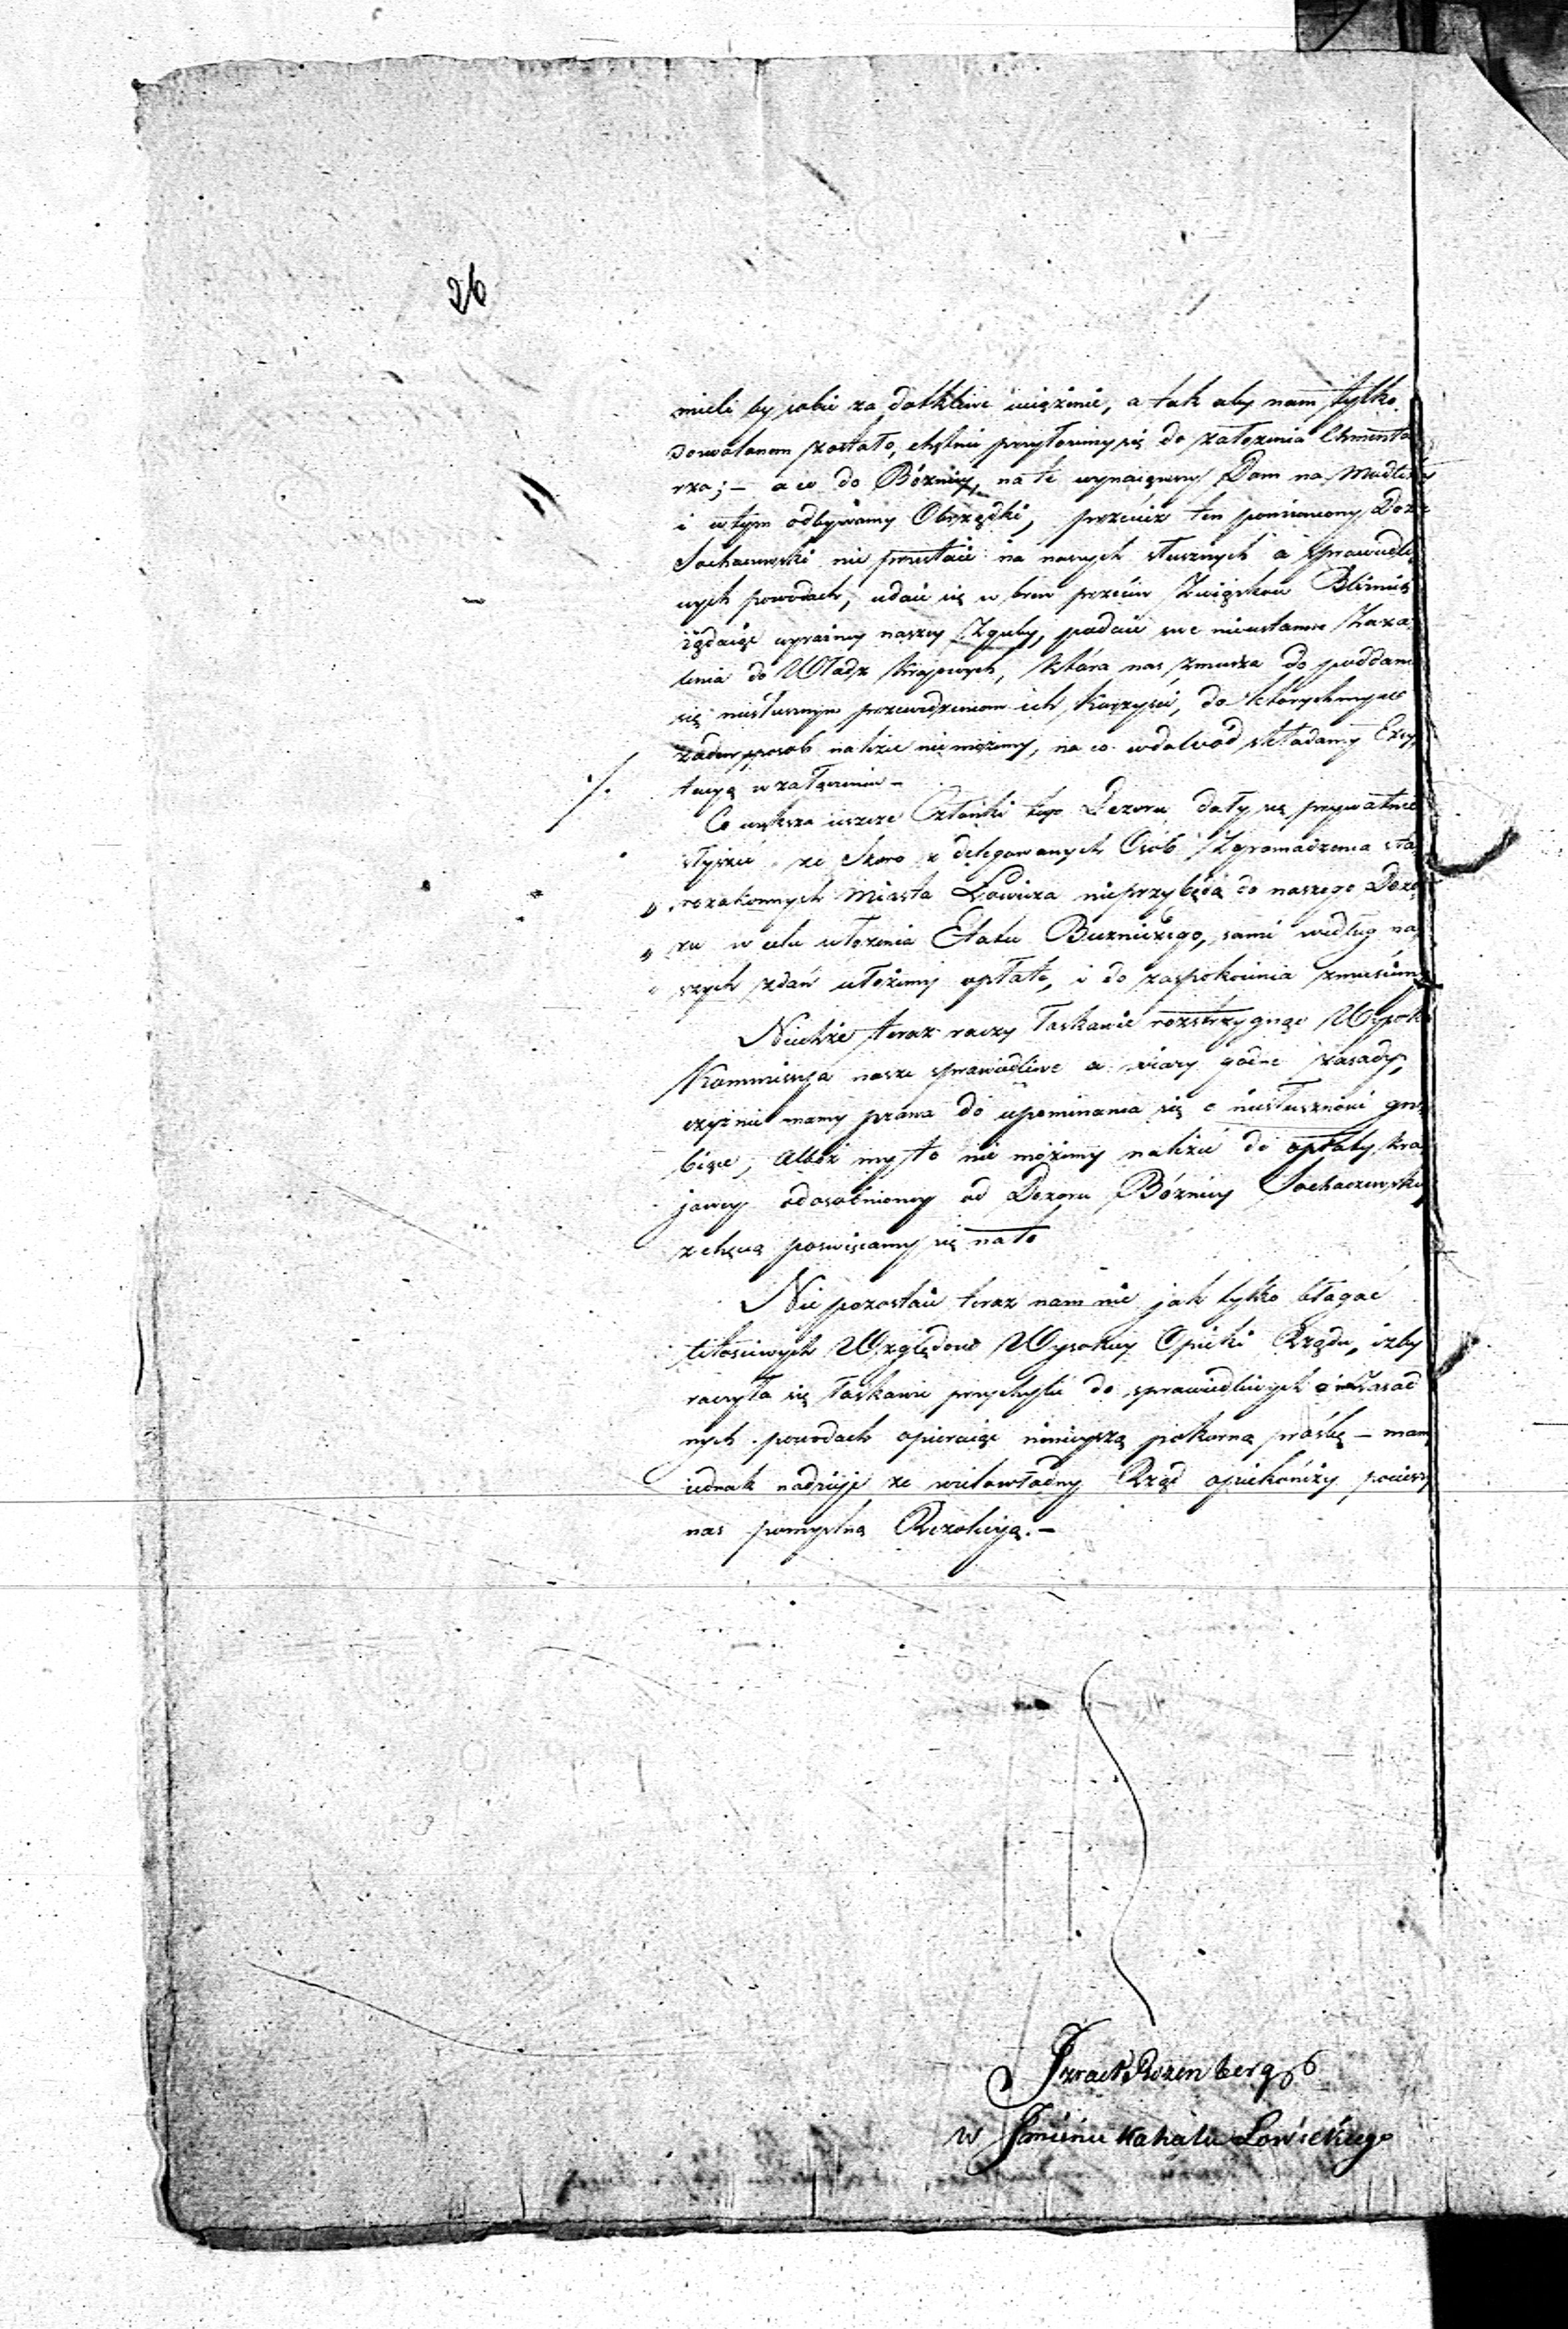 26
mieli by sobie za dotkliwe uciążenie, a tak aby nam tylko
dozwolonem zostało, chętnie przyłożemy się do założenia Chmenta
rza; – a co do Bóżnicy, na te wynaięliśmy Dom na Modlitwy
i w tym odbywamy Obrządki, przecież ten pomieniony Dozór
Sochaczewski nie przestaie na naszych słusznych a sprawiedli
wych powodach, udaie się w brew przeciw Związkow Bliźnich
żądaiąc wyraźney naszey Zguby, podaie swe nieustanne Zaża
lenia do Władz Krajowych, która nas zmusza do poddania
się niesłusznym przewidzeniom ich Korzyści, do których my w
żaden sposób należeć nie możemy, na co w dowód składamy Excy
tacyą w załączeniu –
Co większa ieszcze Członki tego Dozoru dały się prywatnie
słyszeć że skoro z delegowanych Osób Zgromadzenia sta
rozakonnych Miasta Łowicza nieprzybędą do naszego Dozo
ru w celu ułożenia Etatu Buzniczego, sami według na
szych zdań ułożemy opłatę, i do zaspokoienia zmusiemy
Niechże teraz raczy łaskawie rozstrzygnąć Wysoka
Kommissya nasze sprawiedliwe a wiary godne zasady,
czyż nie mamy prawa do upominania się o niesłuszność gnę
biące, Alboż my to nie możemy należeć do opłaty kra
jowey odosobnioney od Dozoru Bóżnicy Sochaczewskiey
z chęcią poswięcamy się na to
Nie pozostaie teraz nam nic jak tylko błagać
litościwych Względow Wysokiey Opieki Rządu, iżby
raczyła się łaskawie przychylić do sprawiedliwych Zasad
nych powodach opieraiąc ninieyszą pokorną prośbę – mamy
iednak nadzieje że wielowładny Rząd opiekończy pocieszy
nas pomyslną Rezolucyą. –
Izrael Rozenberg
w Imieniu Kahału Łowickiego